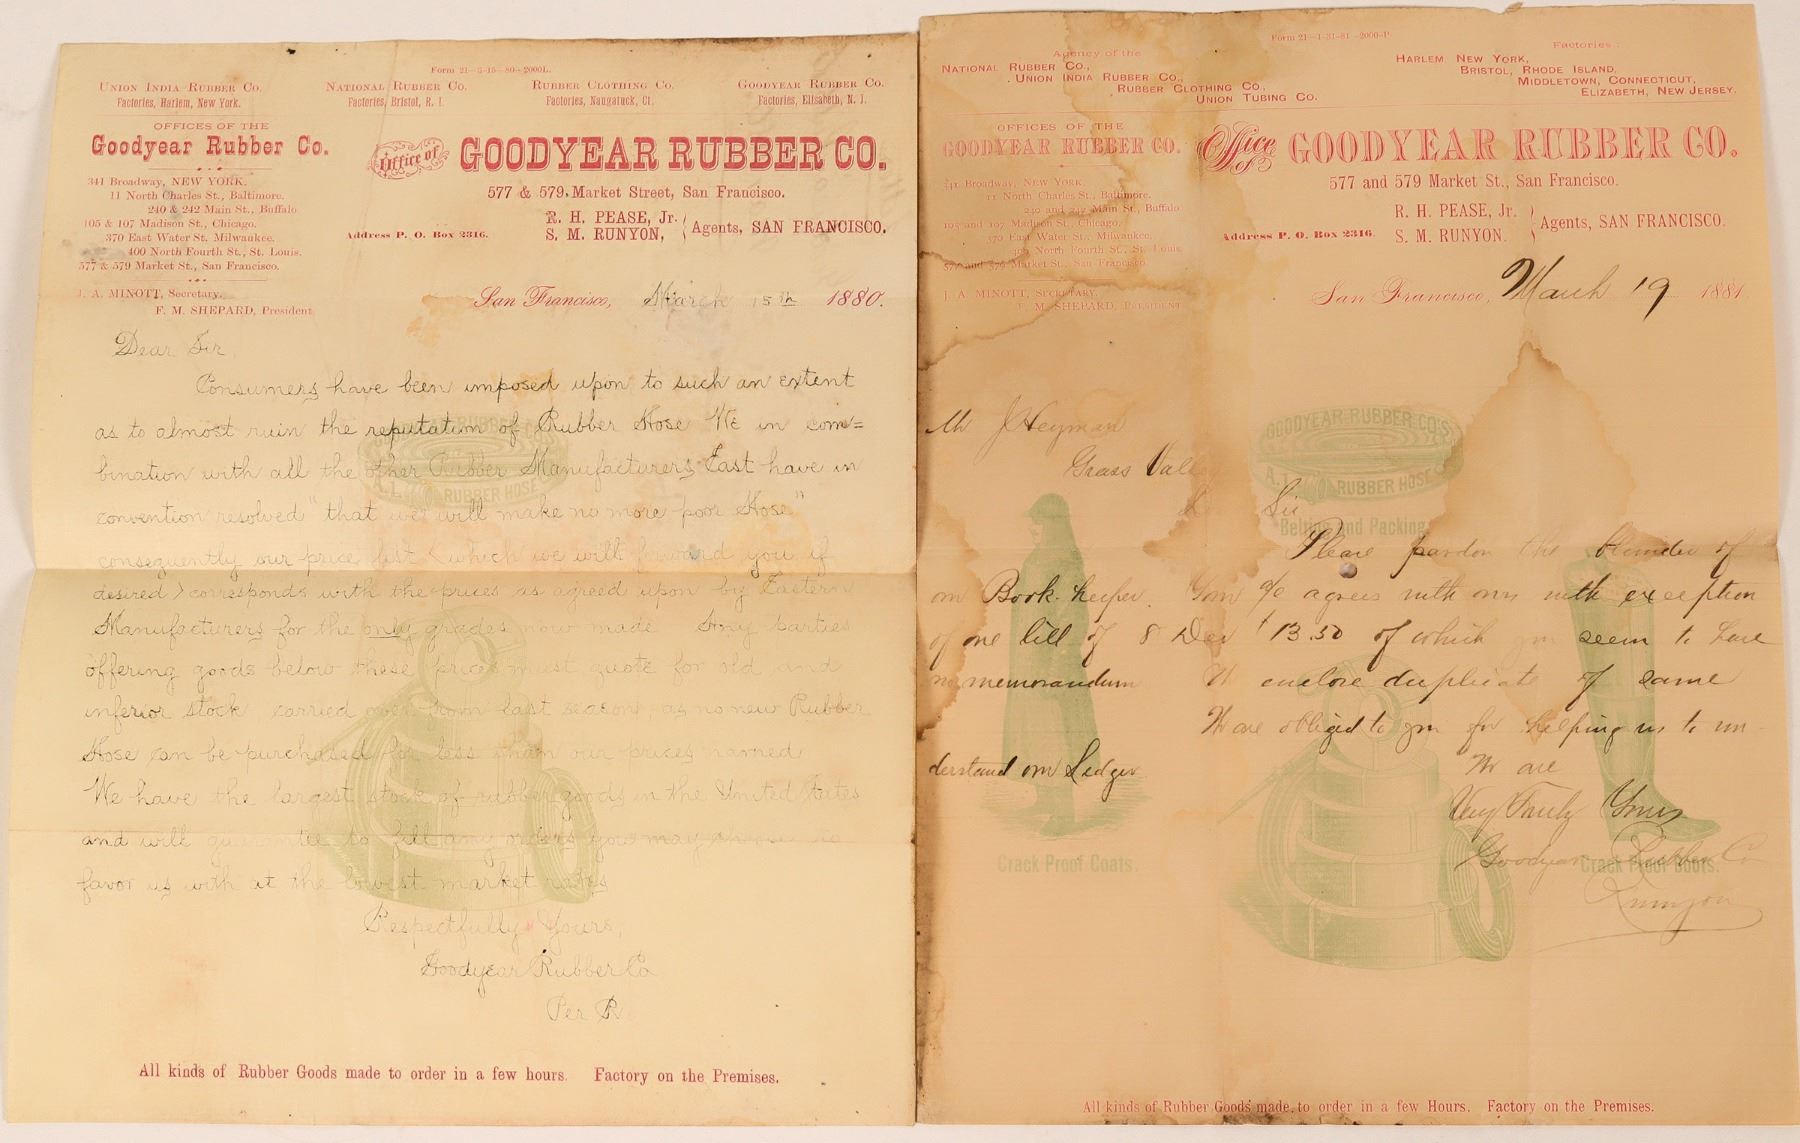 Form 21—3-15—80—2000L.
Union India Rubber Co.
Factories, Harlem, New York.
National Rubber Co.
Factories, Bristol, R. I.
Rubber Clothing Co.
Factories, Naugatuck, Ct.
Goodyear Rubber Co.
Factories, Elisabeth, N. J.
OFFICES OF THE
Goodyear Rubber Co.
341 Broadway, NEW YORK.
11 North Charles St., Baltimore.
240 & 242 Main St., Buffalo
105 & 107 Madison St., Chicago.
370 East Water St. Milwaukee.
400 North Fourth St., St. Louis.
577 & 579 Market St., San Francisco.
J. A. MINOTT, Secretary.
F. M. SHEPARD, President
Office of GOODYEAR RUBBER CO.
577 & 579 Market Street, San Francisco.
Address P. O. Box 2316.
R. H. PEASE, Jr.
S. M. RUNYON,
Agents, SAN FRANCISCO.
San Francisco, March 15th 1880.
Dear Sir
Consumers have been imposed upon to such an extent
as to almost ruin the reputation of Rubber Hose We in com=
bination with all the other Rubber Manufacturers East have in
convention resolved "that we will make no more poor Hose"
consequently our price list (which we will forward you if
desired) corresponds with the prices as agreed upon by Eastern
Manufacturers for the only grades now made Any parties
offering goods below these prices must quote for old and
inferior stock carried over from last season, as no new Rubber
Hose can be purchased for less than our prices named
We have the largest stock of rubber goods in the United States
and will guarantee to fill any orders you may
favor us with at the lowest market rates
Respectfully Yours,
Goodyear Rubber Co
Per R
A.1. RUBBER HOSE
All kinds of Rubber Goods made to order in a few hours. Factory on the Premises.
Form 21—1-31-81—2000-P
Agency of the
NATIONAL RUBBER CO.,
UNION INDIA RUBBER CO.,
RUBBER CLOTHING CO.,
UNION TUBING CO.
Factories:
HARLEM NEW YORK,
BRISTOL, RHODE ISLAND,
MIDDLETOWN, CONNECTICUT,
ELIZABETH, NEW JERSEY.
OFFICES OF THE
GOODYEAR RUBBER CO.
341 Broadway, NEW YORK.
11 North Charles St., Baltimore.
240 and 242 Main St., Buffalo
105 and 107 Madison St., Chicago.
370 East Water St. Milwaukee.
400 North Fourth St., St. Louis
577 and 579 Market St., San Francisco.
J. A. MINOTT, Secretary.
F. M. SHEPARD, President
Office of GOODYEAR RUBBER CO.
577 and 579 Market St., San Francisco.
Address P. O. Box 2316.
R. H. PEASE, Jr.
S. M. RUNYON.
Agents, SAN FRANCISCO.
San Francisco, March 19 1881
Mr J Heyman
Grass Valley
Sir
Please pardon the blunder of
our Book-keeper. Your % agrees with ours with exception
of one bill of 8 Dec $13.50 of which you seem to have
no memorandum We enclose duplicate of same
We are obliged to you for helping us to un-
derstand our Ledger
We are
Very Truly Yours
Goodyear Rubber Co
Runyon
GOODYEAR RUBBER CO'S
A.1. RUBBER HOSE
Belting and Packing
Crack Proof Coats.
Crack Proof Boots.
All kinds of Rubber Goods made to order in a few Hours. Factory on the Premises.